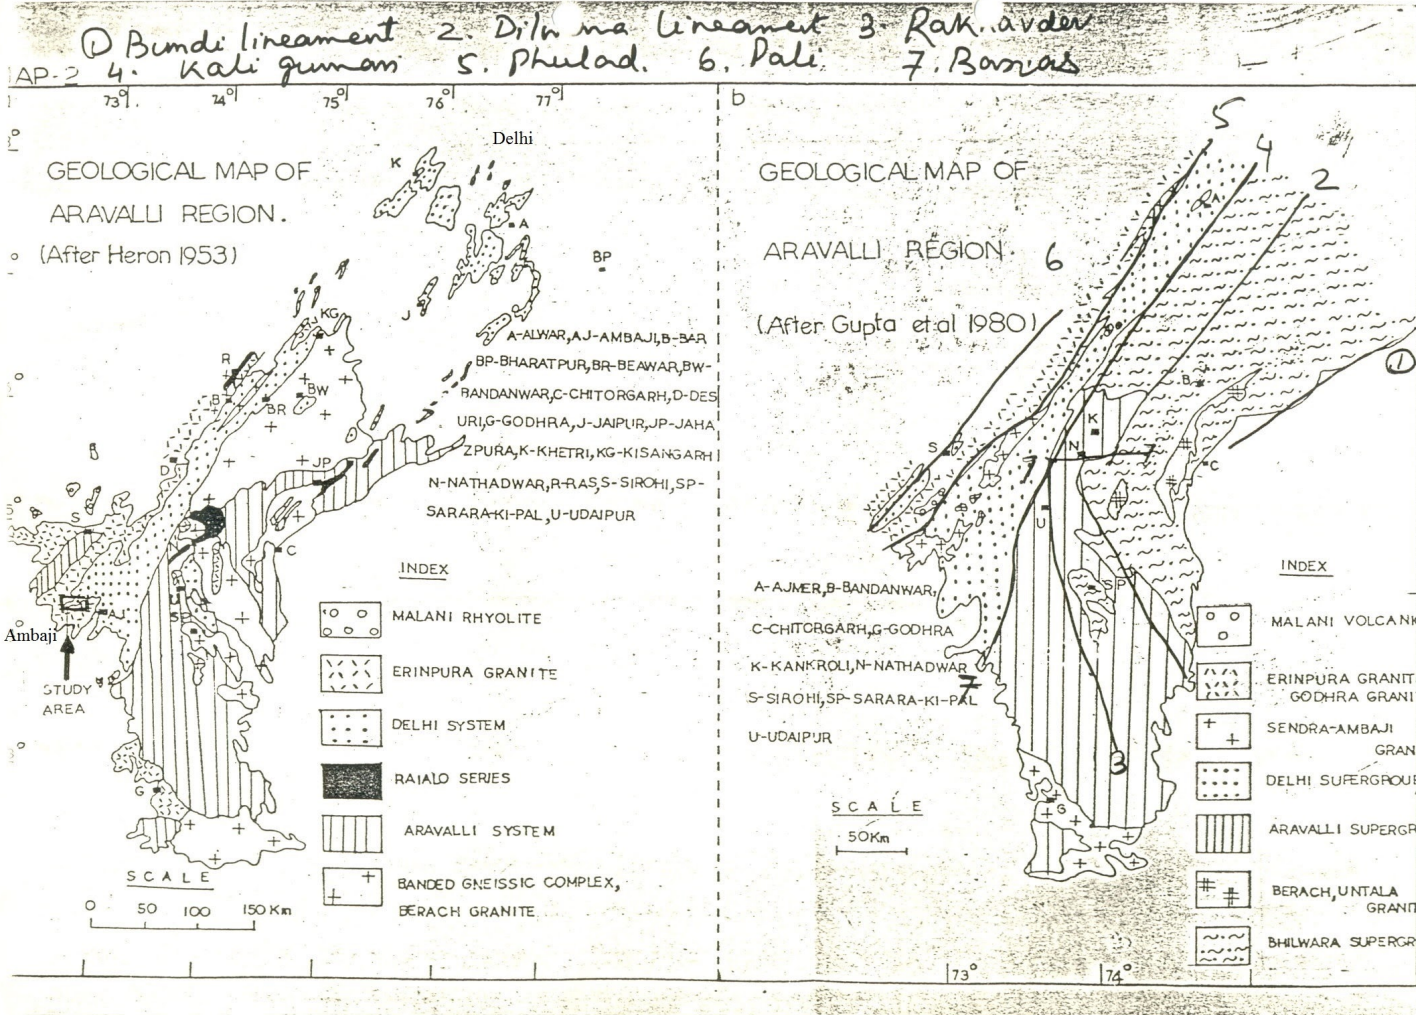 ① Bundi lineament 2. Dilwna lineament 3. Rak..avdev
AP-2 4. Kali guman 5. Phulad. 6. Pali. 7. Banas
73° 74° 75° 76° 77°
Delhi
GEOLOGICAL MAP OF
ARAVALLI REGION.
(After Heron 1953)
K
A
BP
J
KG
R
B
BR
BW
D
JP
S
C
U
SP
AJ
G
A-ALWAR, AJ-AMBAJI, B-BAR
BP-BHARATPUR, BR-BEAWAR, BW-
BANDANWAR, C-CHITORGARH, D-DES
URI, G-GODHRA, J-JAIPUR, JP-JAHA
ZPURA, K-KHETRI, KG-KISANGARH
N-NATHADWAR, R-RAS, S-SIROHI, SP-
SARARA-KI-PAL, U-UDAIPUR
Ambaji
STUDY
AREA
INDEX
MALANI RHYOLITE
ERINPURA GRANITE
DELHI SYSTEM
RAIALO SERIES
ARAVALLI SYSTEM
BANDED GNEISSIC COMPLEX,
BERACH GRANITE
SCALE
0 50 100 150 Km
b
GEOLOGICAL MAP OF
ARAVALLI REGION.
(After Gupta et al 1980)
5
4
2
6
①
A
B
K
N
7
7
S
C
U
SP
7
3
G
A-AJMER, B-BANDANWAR,
C-CHITORGARH, G-GODHRA
K-KANKROLI, N-NATHADWAR
S-SIROHI, SP-SARARA-KI-PAL
U-UDAIPUR
SCALE
50Km
INDEX
MALANI VOLCANI
ERINPURA GRANIT
GODHRA GRANI
SENDRA-AMBAJI
GRAN
DELHI SUPERGROUP
ARAVALLI SUPERGR
BERACH, UNTALA
GRANIT
BHILWARA SUPERGR
73° 74°